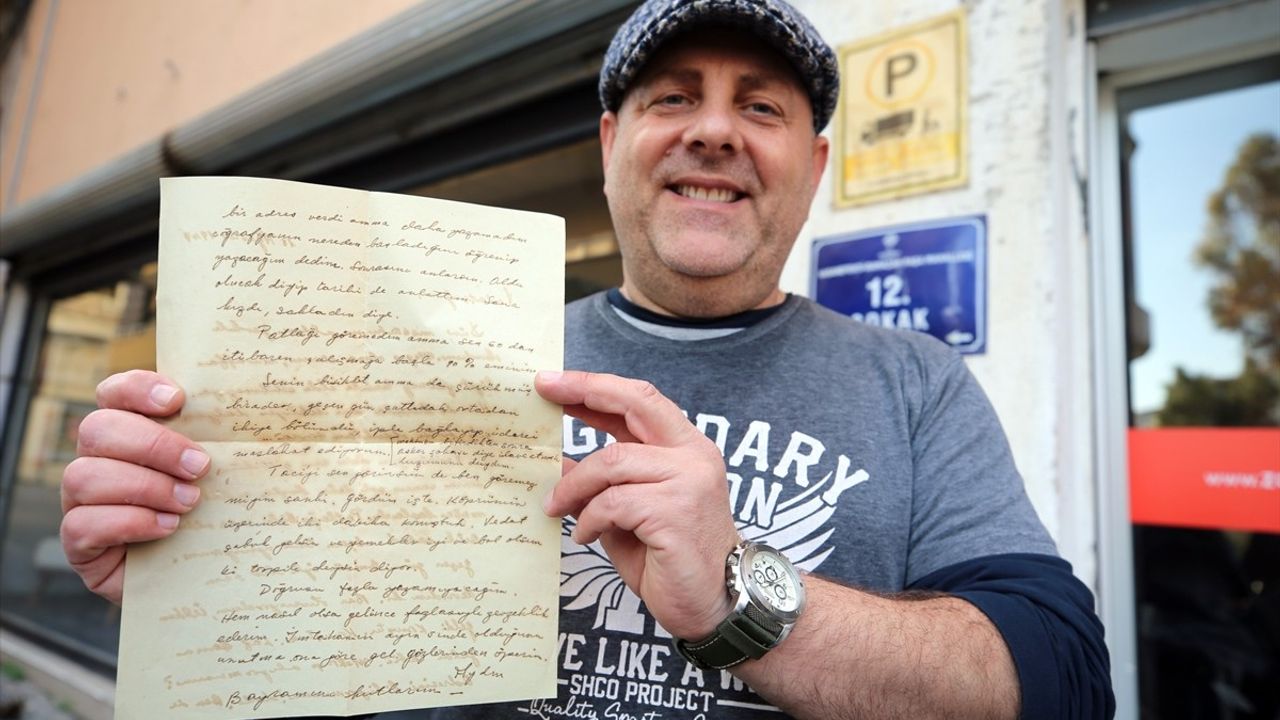 bir adres verdi amma daha yazamadım
nereden başladığını öğrenip
yazacağım dedim. Sonrasını anlarsın. Oldu
olacak deyip tarihi de anlattım. Sana
kızdı, sakladın diye.
Patlağı göremedim amma sen 60 dan
itibaren çalışmağa başla 90% eminim
Senin bisiklet amma da çürükmüş
birader, geçen gün çattadak ortadan
ikiye bölündü, iple bağlayıp idarei
maslahat ediyorum.
Tariği sen görürsün de ben göremez
miyim sanki. Gördüm işte. Köprünün
üzerinde iki dakika konuştuk. Vedat
çabuk gelsin ve yemekler iyi ve bol olsun
ki torpile değsin diyor.
Doğrusu fazla yazamıyacağım.
Hem nasıl olsa gelince fazlasıyle gevezelik
ederim. İmtahanın ayın inde olduğunu
unutma ona göre gel. gözlerinden öperim.
Aydın
Bayramını kutlarım —
P
12.
SOKAK
LEGENDARY
LIVE LIKE A
SHCO PROJECT
Quality
www.